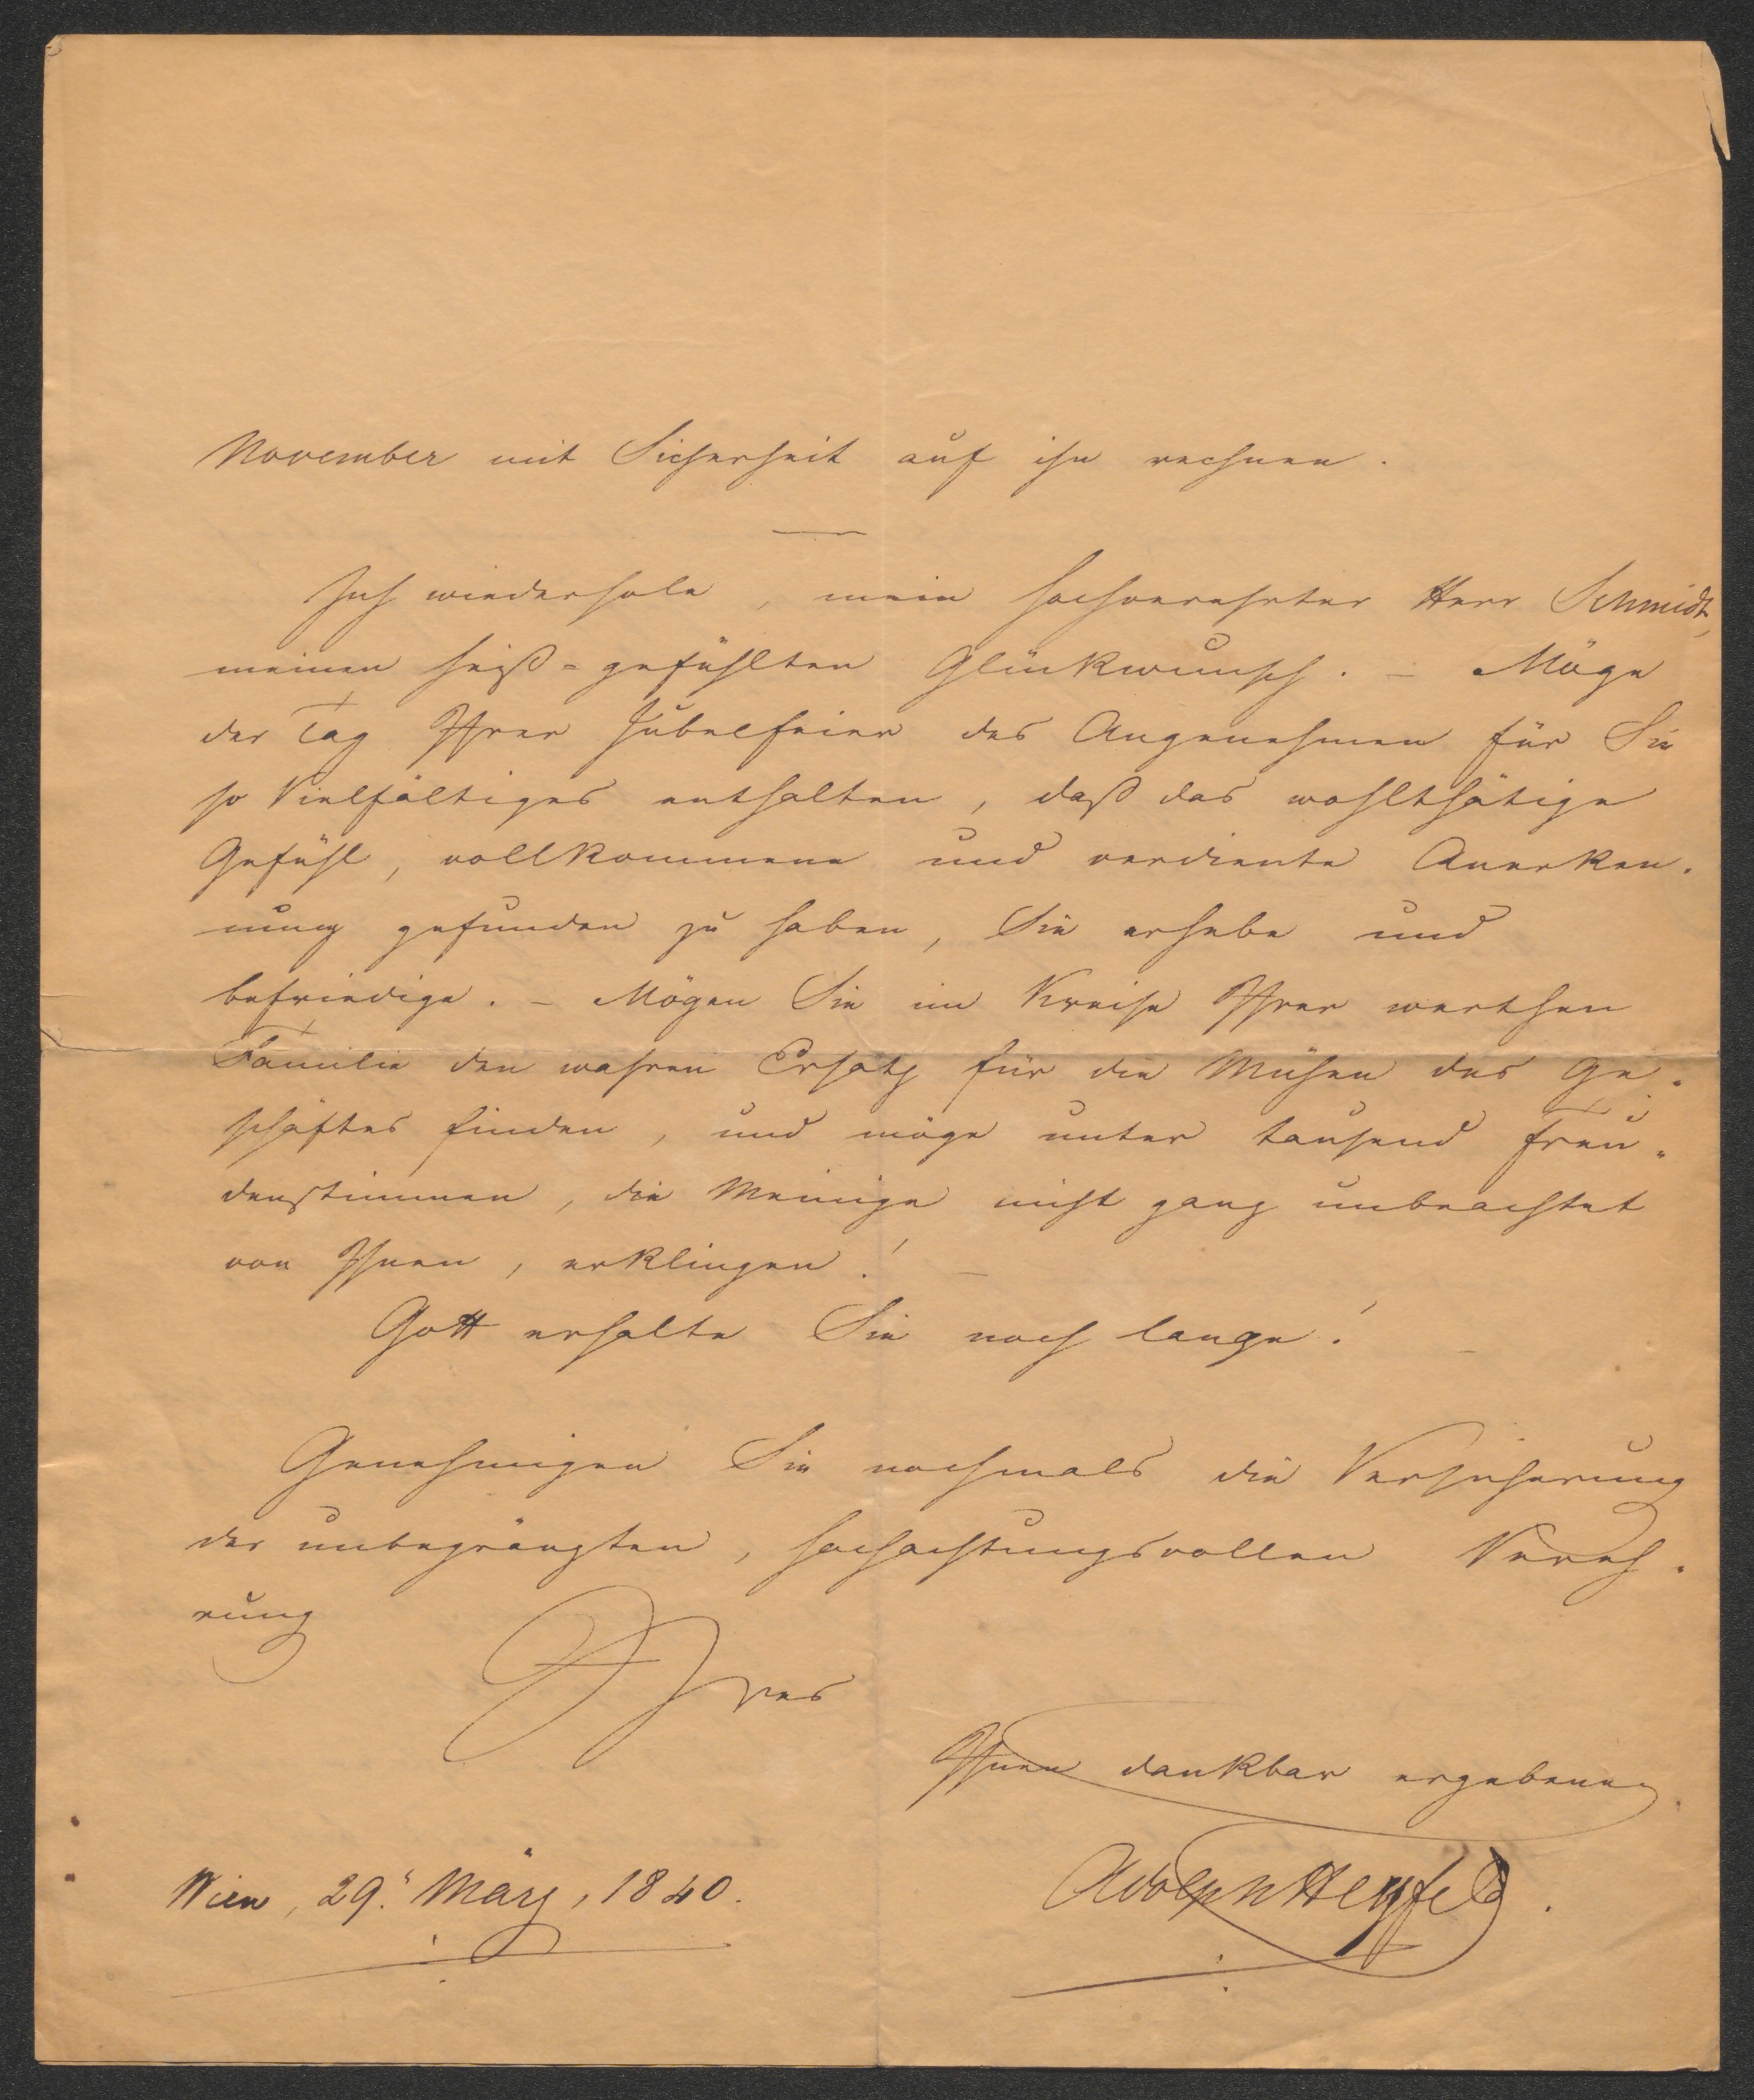 November mit Sicherheit auf ihn rechnen.
Ich wiederhole, mein hochverehrter Herr Schmidt,
meinen heiß-gefühlten Glückwunsch. – Möge
der Tag Ihrer Jubelfeier des Angenehmen für Sie
so Vielfältiges enthalten, daß das wohlthätige
Gefühl, vollkommene und verdiente Anerken-
nung gefunden zu haben, Sie erhebe und
befriedige. – Mögen Sie im Kreise Ihrer werthen
Familie den wahren Ersatz für die Mühen des Ge-
schäftes finden, und möge unter tausend Freu-
denstimmen, die Meinige nicht ganz unbeachtet
von Ihnen, erklingen! –
Gott erhalte Sie noch lange! –
Genehmigen Sie nochmals die Versicherung
der unbegränzten, hochachtungsvollen Vereh-
rung
Ihres
Ihnen dankbar ergebenen
Wien, 29. März, 1840.
Adolph